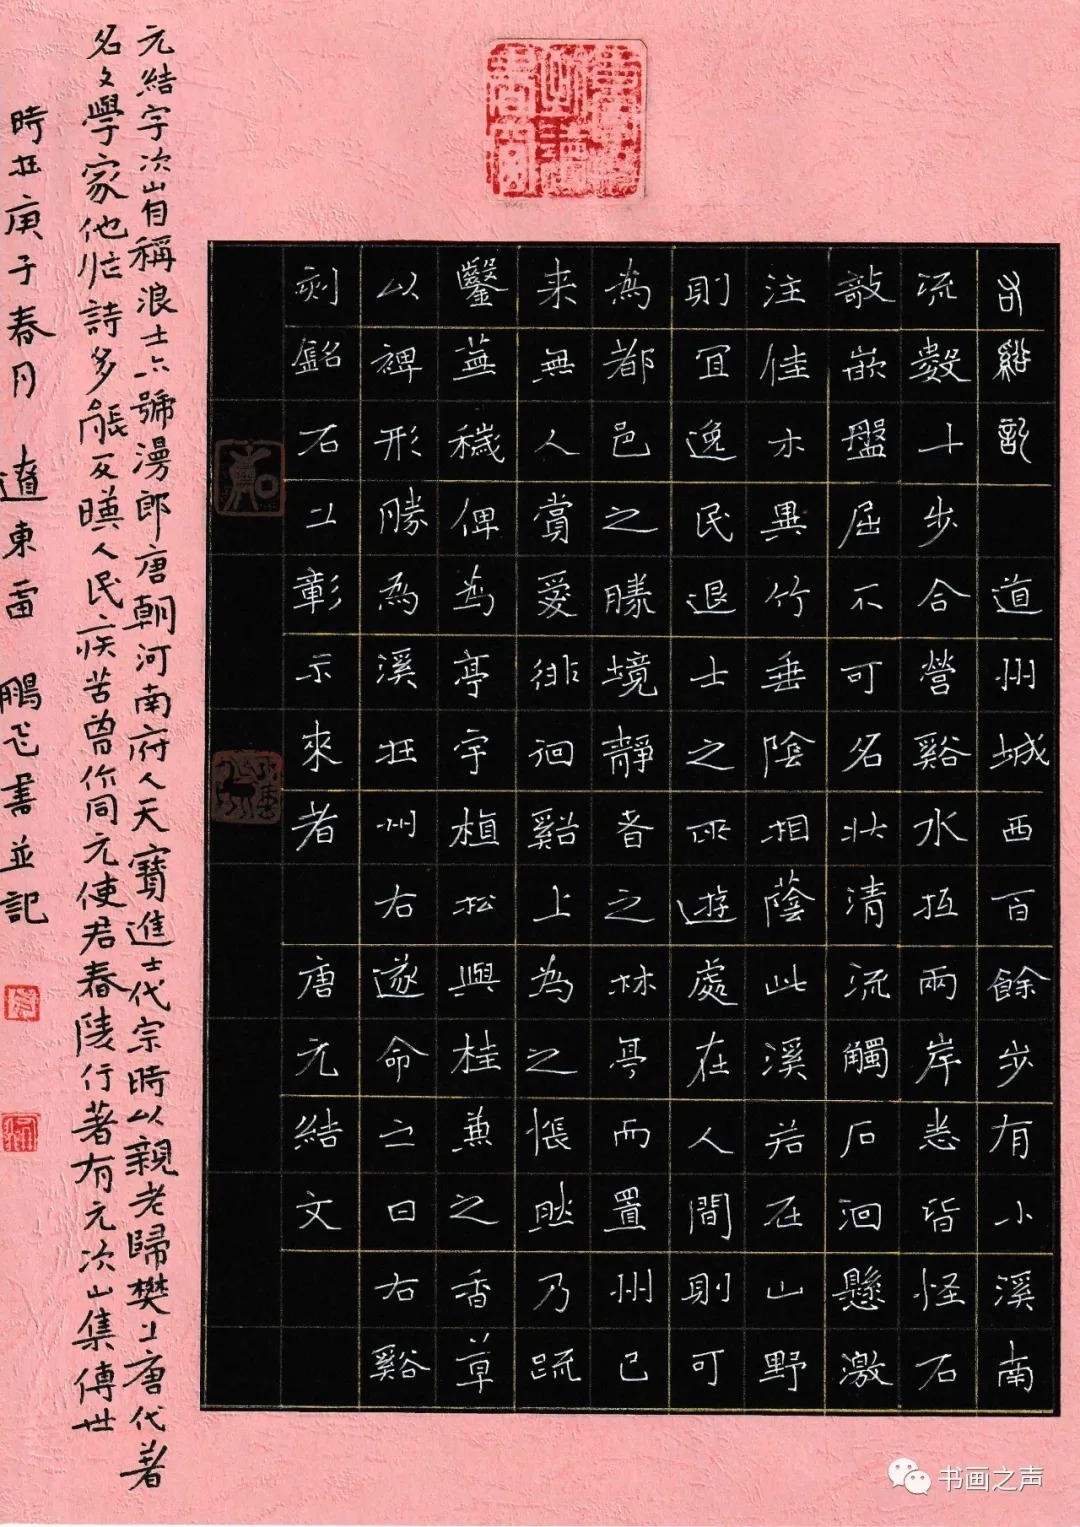 右谿記 道州城西百餘步有小溪南
流數十步合營谿水抵兩岸悉皆怪石
敧嵌盤屈不可名狀清流觸石洄懸激
注佳木異竹垂陰相蔭此溪若在山野
則宜逸民退士之所遊處在人間則可
為都邑之勝境靜者之林亭而置州已
来無人賞愛徘徊谿上為之悵然乃疏
鑿蕪穢俾為亭宇植松與桂兼之香草
以裨形勝為溪在州右遂命之曰右谿
刻銘石上彰示來者 唐元結文
元結字次山自稱浪士亦號漫郎唐朝河南府人天寶進士代宗時以親老歸樊上唐代著
名文學家他作詩多能反暎人民疾苦曾作同元使君春陵行著有元次山集傳世
時在庚子春月 遼東雷 鵬飞書並記
书画之声